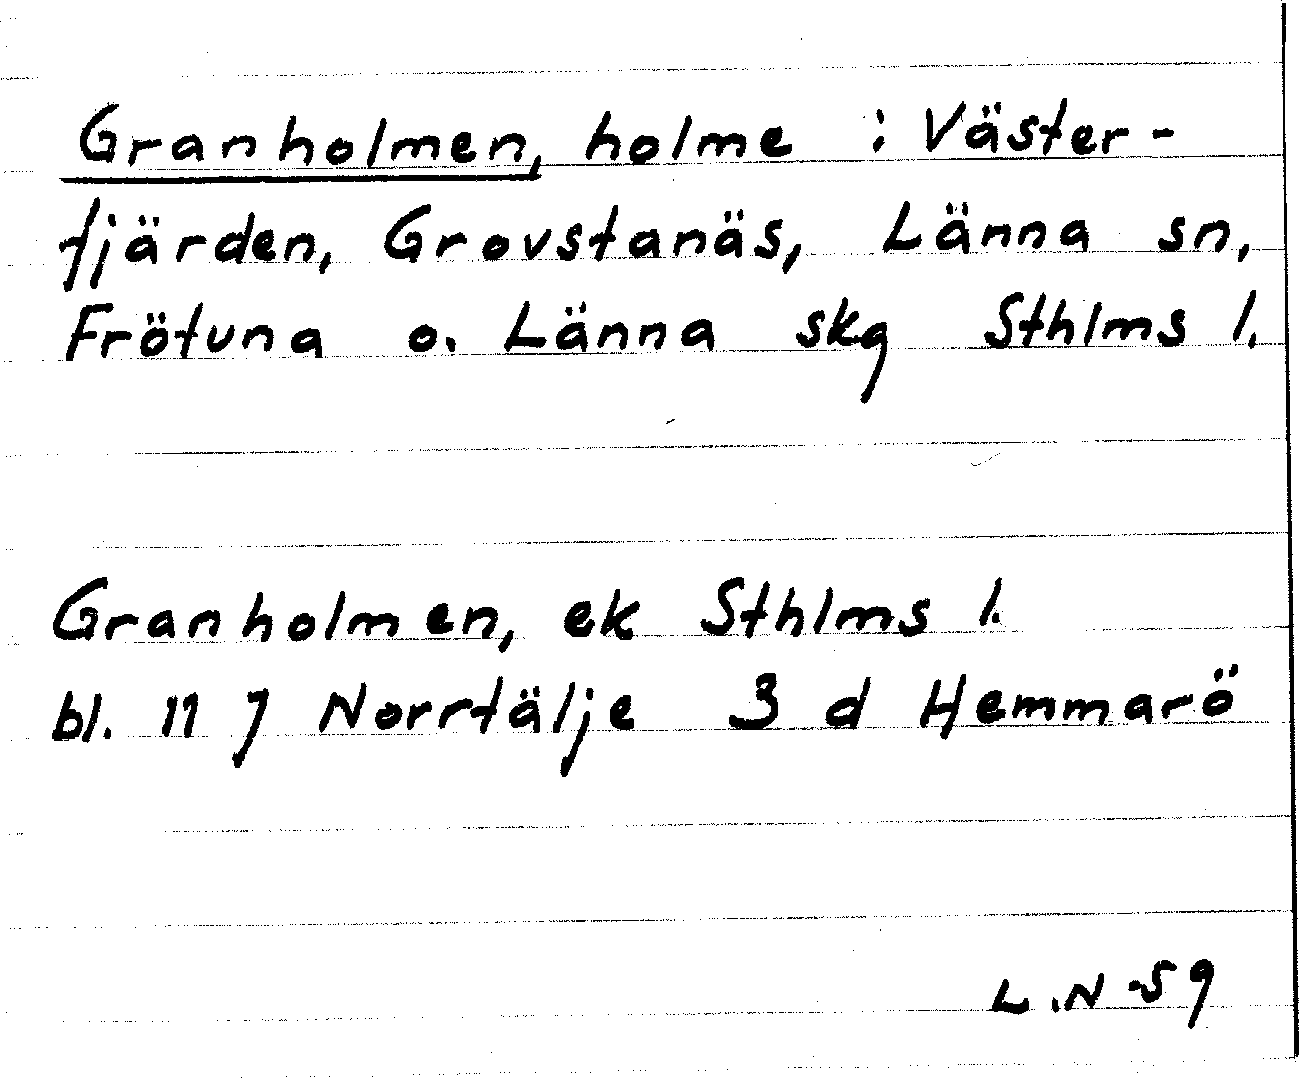 Granholmen, holme i Väster-
fjärden, Grovstanäs, Länna sn,
Frötuna o. Länna skg Sthlms l.
Granholmen, ek Sthlms l.
bl. 11 J Norrtälje 3 d Hemmarö
L.N -59